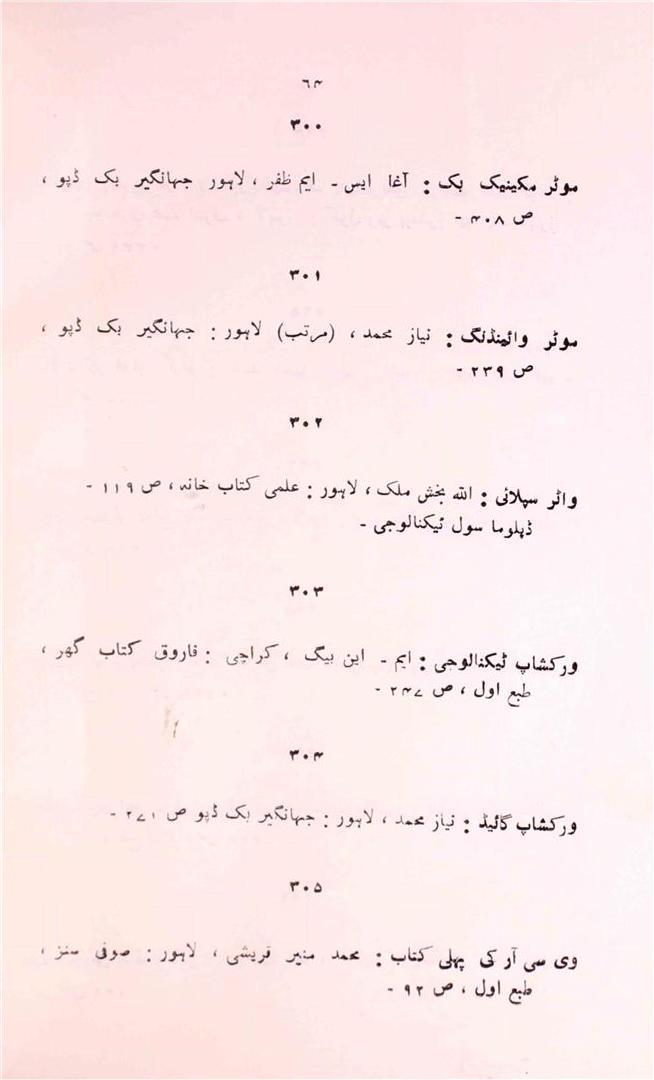 ۶۴
۳۰۰
موٹر مکینیک بک : آغا ایس ۔ ایم ظفر ، لاہور جہانگیر بک ڈپو ،
ص ۴۰۸ ۔
۳۰۱
موٹر وائنڈنگ : نیاز محمد ، (مرتب) لاہور : جہانگیر بک ڈپو ،
ص ۲۳۹ ۔
۳۰۲
واٹر سپلائی : اللہ بخش ملک ، لاہور : علمی کتاب خانہ ، ص ۱۱۹ ۔
ڈپلوما سول ٹیکنالوجی ۔
۳۰۳
ورکشاپ ٹیکنالوجی : ایم ۔ این بیگ ، کراچی : فاروق کتاب گھر ،
طبع اول ، ص ۲۴۷ ۔
۳۰۴
ورکشاپ گائیڈ : نیاز محمد ، لاہور : جہانگیر بک ڈپو ص ۲۷۱ ۔
۳۰۵
وی سی آر کی پہلی کتاب : محمد منیر قریشی ، لاہور : صوفی سنز ،
طبع اول ، ص ۹۲ ۔